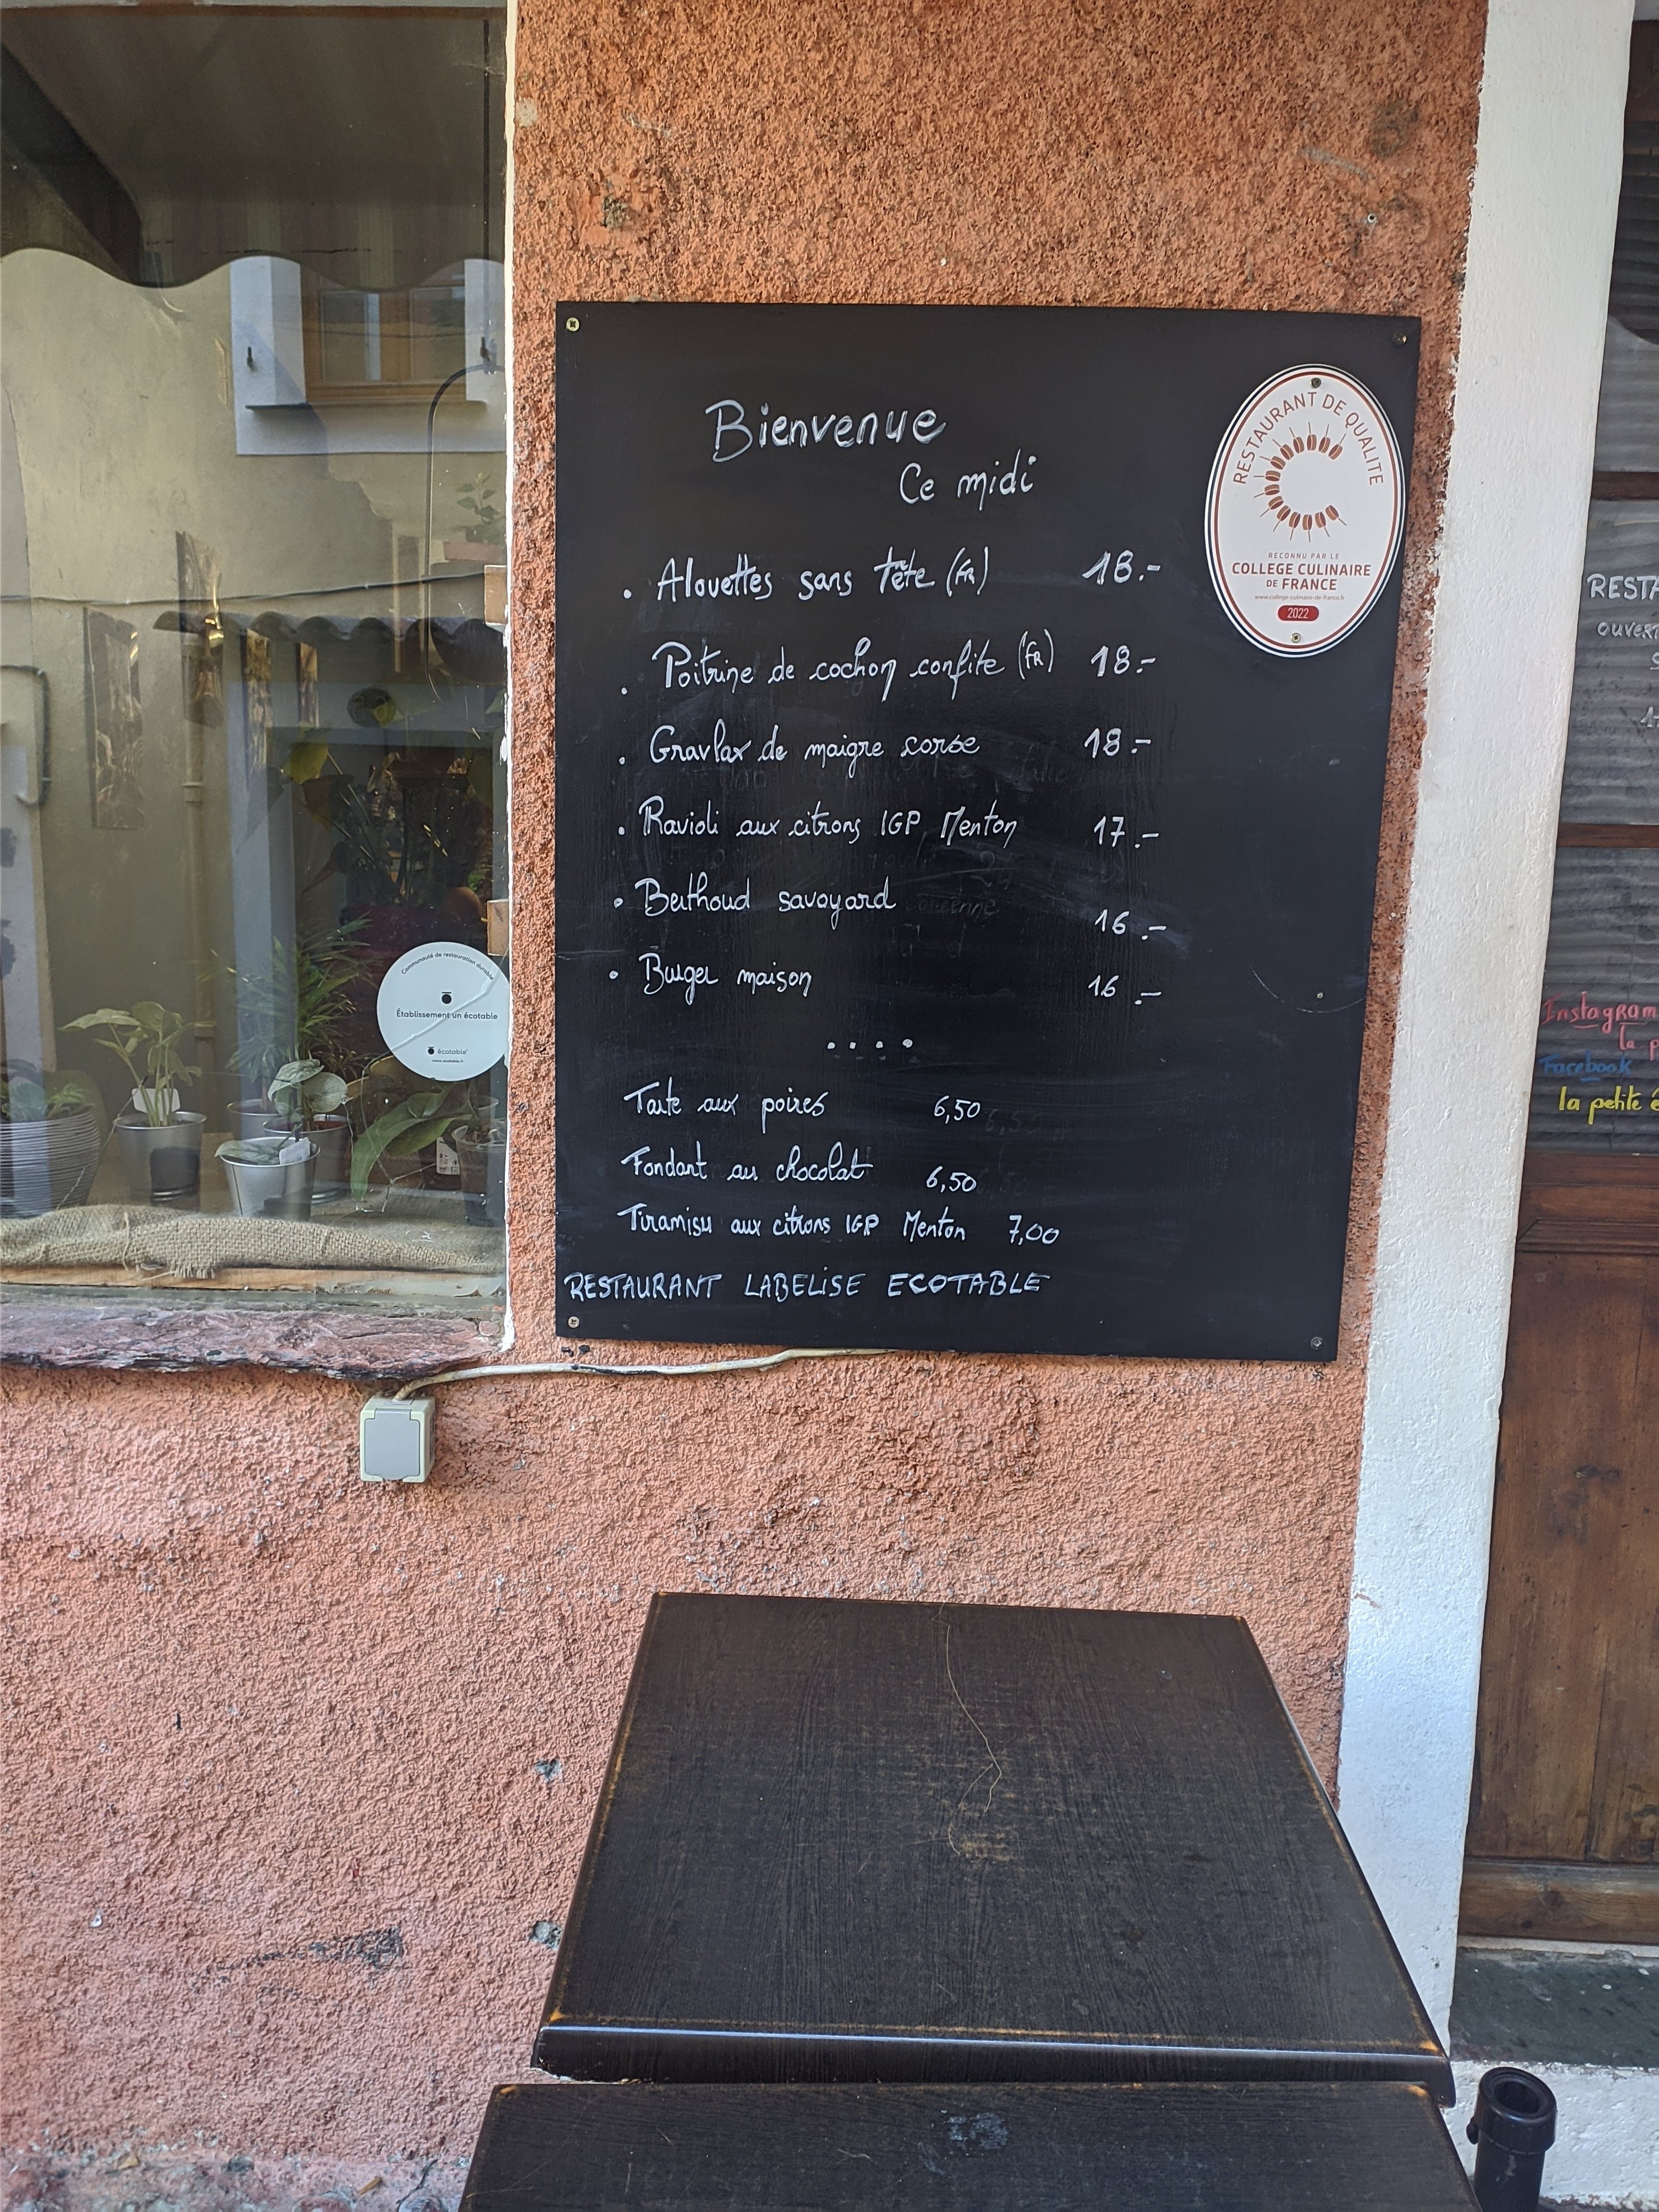 Bienvenue
Ce midi
. Alouettes sans tête (FR) 18.-
. Poitrine de cochon confite (FR) 18.-
. Gravlax de maigre corse 18.-
. Ravioli aux citrons IGP Menton 17.-
. Berthoud savoyard 16.-
. Burger maison 16.-
....
Tarte aux poires 6,50
Fondant au chocolat 6,50
Tiramisu aux citrons IGP Menton 7,00
RESTAURANT LABELISE ECOTABLE
RESTAURANT DE QUALITÉ
RECONNU PAR LE
COLLEGE CULINAIRE
DE FRANCE
www.college-culinaire-de-france.fr
2022
Communauté de restauration durable
Établissement un écotable
écotable
www.ecotable.fr
RESTA
OUVERT
Instagram
la p
Facebook
la petite é